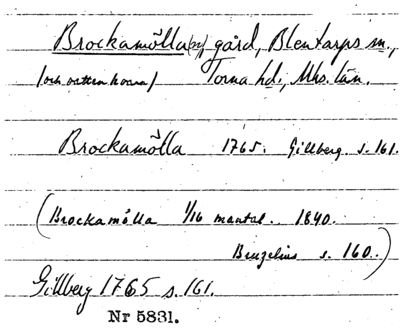 Brockamölla(n) gård, Blentarps sn.,
(och vattenkvarn) Torna hd., Mhs. län.
Brockamölla 1765. Gillberg. s. 161.
(Brockamölla 1/16 mantal. 1840.
Bruzelius s. 160.)
Gillberg 1765 s. 161.
Nr 5831.